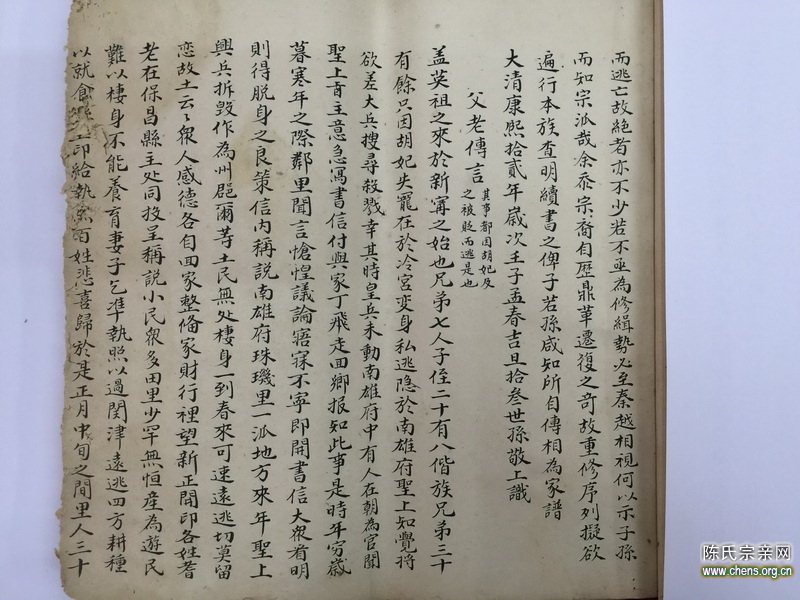 而逃亡故絕者亦不少若不亟為修緝勢必至秦越相視何以示子孫
而知宗派哉余忝宗裔自歷鼎革遷復之奇故重修序列擬欲
遍行本族查明續書之俾子若孫咸知所自傳相為家譜
大清康熙拾貳年歲次壬子孟春吉旦拾叁世孫敬上識
父老傳言其事都因胡妃及之被貶而逃是也
盖英祖之來於新甯之始也兄弟七人子侄二十有八偕族兄弟三十
有餘只因胡妃失寵在於冷宮变身私逃隐於南雄府聖上知覺將
欲差大兵搜尋殺戮幸其時皇兵未動南雄府中有人在朝為官聞
聖上有主意急寫書信付與家丁飛走回鄉报知此事是時年穷歲
暮寒年之際鄰里聞言愴惶議論寤寐不寧即開書信大眾看明
則得脫身之良策信内稱説南雄府珠璣里一派地方來年聖上
興兵拆毀作為州郡爾等土民無处棲身一到春來可速遠逃切莫留
恋故土云々眾人感德各自回家整俻家財行裡望新正開印各姓耆
老在保昌縣主处同投呈稱説小民眾多田里少罕無恒産為遊民
難以棲身不能養育妻子乞準執照以過関津遠逃四方耕種
以就食 印給執 百姓悲喜歸於是正月中旬之間里人三十
陈氏宗亲网
www.chens.org.cn